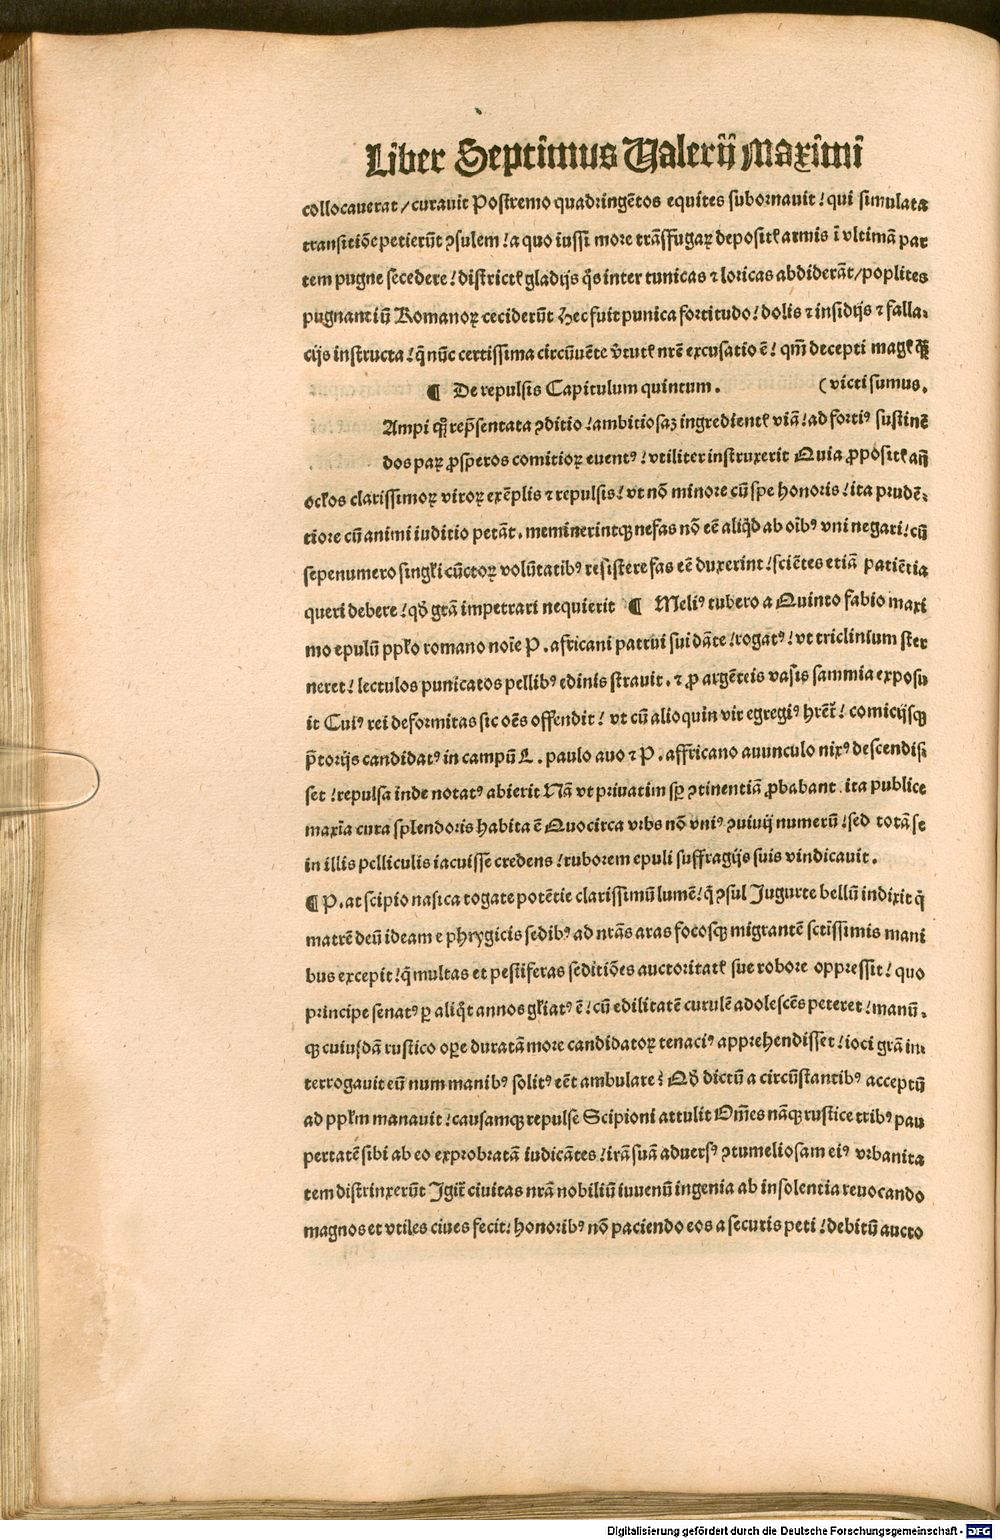 Liber Septimus Valerij Maximi
collocauerat / curauit Postremo quadringētos equites subornauit ! qui simulata
transitiōe petierūt ꝯsulem ! a quo iussi more trāsfugaꝝ depositꝭ armis ī vltimā par
tem pugne secedere ! districtꝭ gladijs q̄s inter tunicas ⁊ loricas abdiderāt / poplites
pugnantiū Romanoꝝ ceciderūt Hec fuit punica fortitudo ! dolis ⁊ insidijs ⁊ falla-
cijs instructa ! q̄ nūc certissima circūuēte v̄tutꝭ nr̄e excusatio ē ! qm̄ decepti magꝭ q̄ꝫ
¶ De repulsis Capitulum quintum . ( victi sumus .
Ampi qꝫ rep̄sentata ꝯditio ! ambitiosaꝫ ingredientꝭ viā ! ad fortiꝰ sustinē
dos paꝝ ꝓsperos comitioꝝ euentꝰ ! vtiliter instruxerit Quia ꝓpositꝭ an̄
ocłos clarissimoꝝ viroꝝ exēplis ⁊ repulsis ! vt nō minore cū spe honoris ! ita prudē-
tiore cū animi iuditio petāt . meminerintqꝫ nefas nō eē aliq̇d ab oībꝰ vni negari ! cū
sepenumero singłi cūctoꝝ volūtatibꝰ resistere fas eē duxerint ! sciētes etiā patiētia
queri debere ! qḋ grā impetrari nequierit ¶ Meliꝰ tubero a Quinto fabio maxi
mo epulū ppło romano noīe P . africani patrui sui dāte ! rogatꝰ ! vt triclinium ster
neret ! lectulos punicatos pellibꝰ edinis strauit . ⁊ ꝓ argēteis vasis sammia exposu
it Cuiꝰ rei deformitas sic oēs offendit ! vt cū alioquin vir egregiꝰ hr̄et ! comicijsqꝫ
p̄torijs candidatꝰ in campū L . paulo auo ⁊ P . affricano auunculo nixꝰ descendis
set ! repulsa inde notatꝰ abierit Nā vt priuatim sꝑ ꝯtinentiā ꝓbabant . ita publice
maxīa cura splendoris habita ē Quocirca vrbs nō vniꝰ ꝯuiuij numerū ! sed totā se
in illis pelliculis iacuisse credens ! ruborem epuli suffragijs suis vindicauit .
¶ P . at scipio nasica togate potētie clarissimū lumē ! q̇ ꝯsul Jugurte bellū indixit q̇
matrē deū ideam e phrygicis sedibꝰ ad nr̄as aras focosqꝫ migrantē sctīssimis mani
bus excepit ! q̇ multas et pestiferas seditiōes auctoritatꝭ sue robore oppressit ! quo
principe senatꝰ ꝑ aliq̊t annos głiatꝰ ē ! cū edilitatē curulē adolescēs peteret ! manū .
qꝫ cuiusdā rustico oꝑe duratā more candidatoꝝ tenaciꝰ apprehendisset ! ioci grā in-
terrogauit eū num manibꝰ solitꝰ eēt ambulare ? Qḋ dictū a circūstantibꝰ acceptū
ad ppłm manauit ! causamqꝫ repulse Scipioni attulit Om̄es nāqꝫ rustice tribꝰ pau
pertatē sibi ab eo exprobratā iudicātes ! irā suā aduersꝰ ꝯtumeliosam eiꝰ vrbanita
tem distrinxerūt Jgit̄ ciuitas nrā nobiliū iuuenū ingenia ab insolentia reuocando
magnos et vtiles ciues fecit ! honoribꝰ nō paciendo eos a securis peti ! debitū aucto
Digitalisierung gefördert durch die Deutsche Forschungsgemeinschaft - DFG